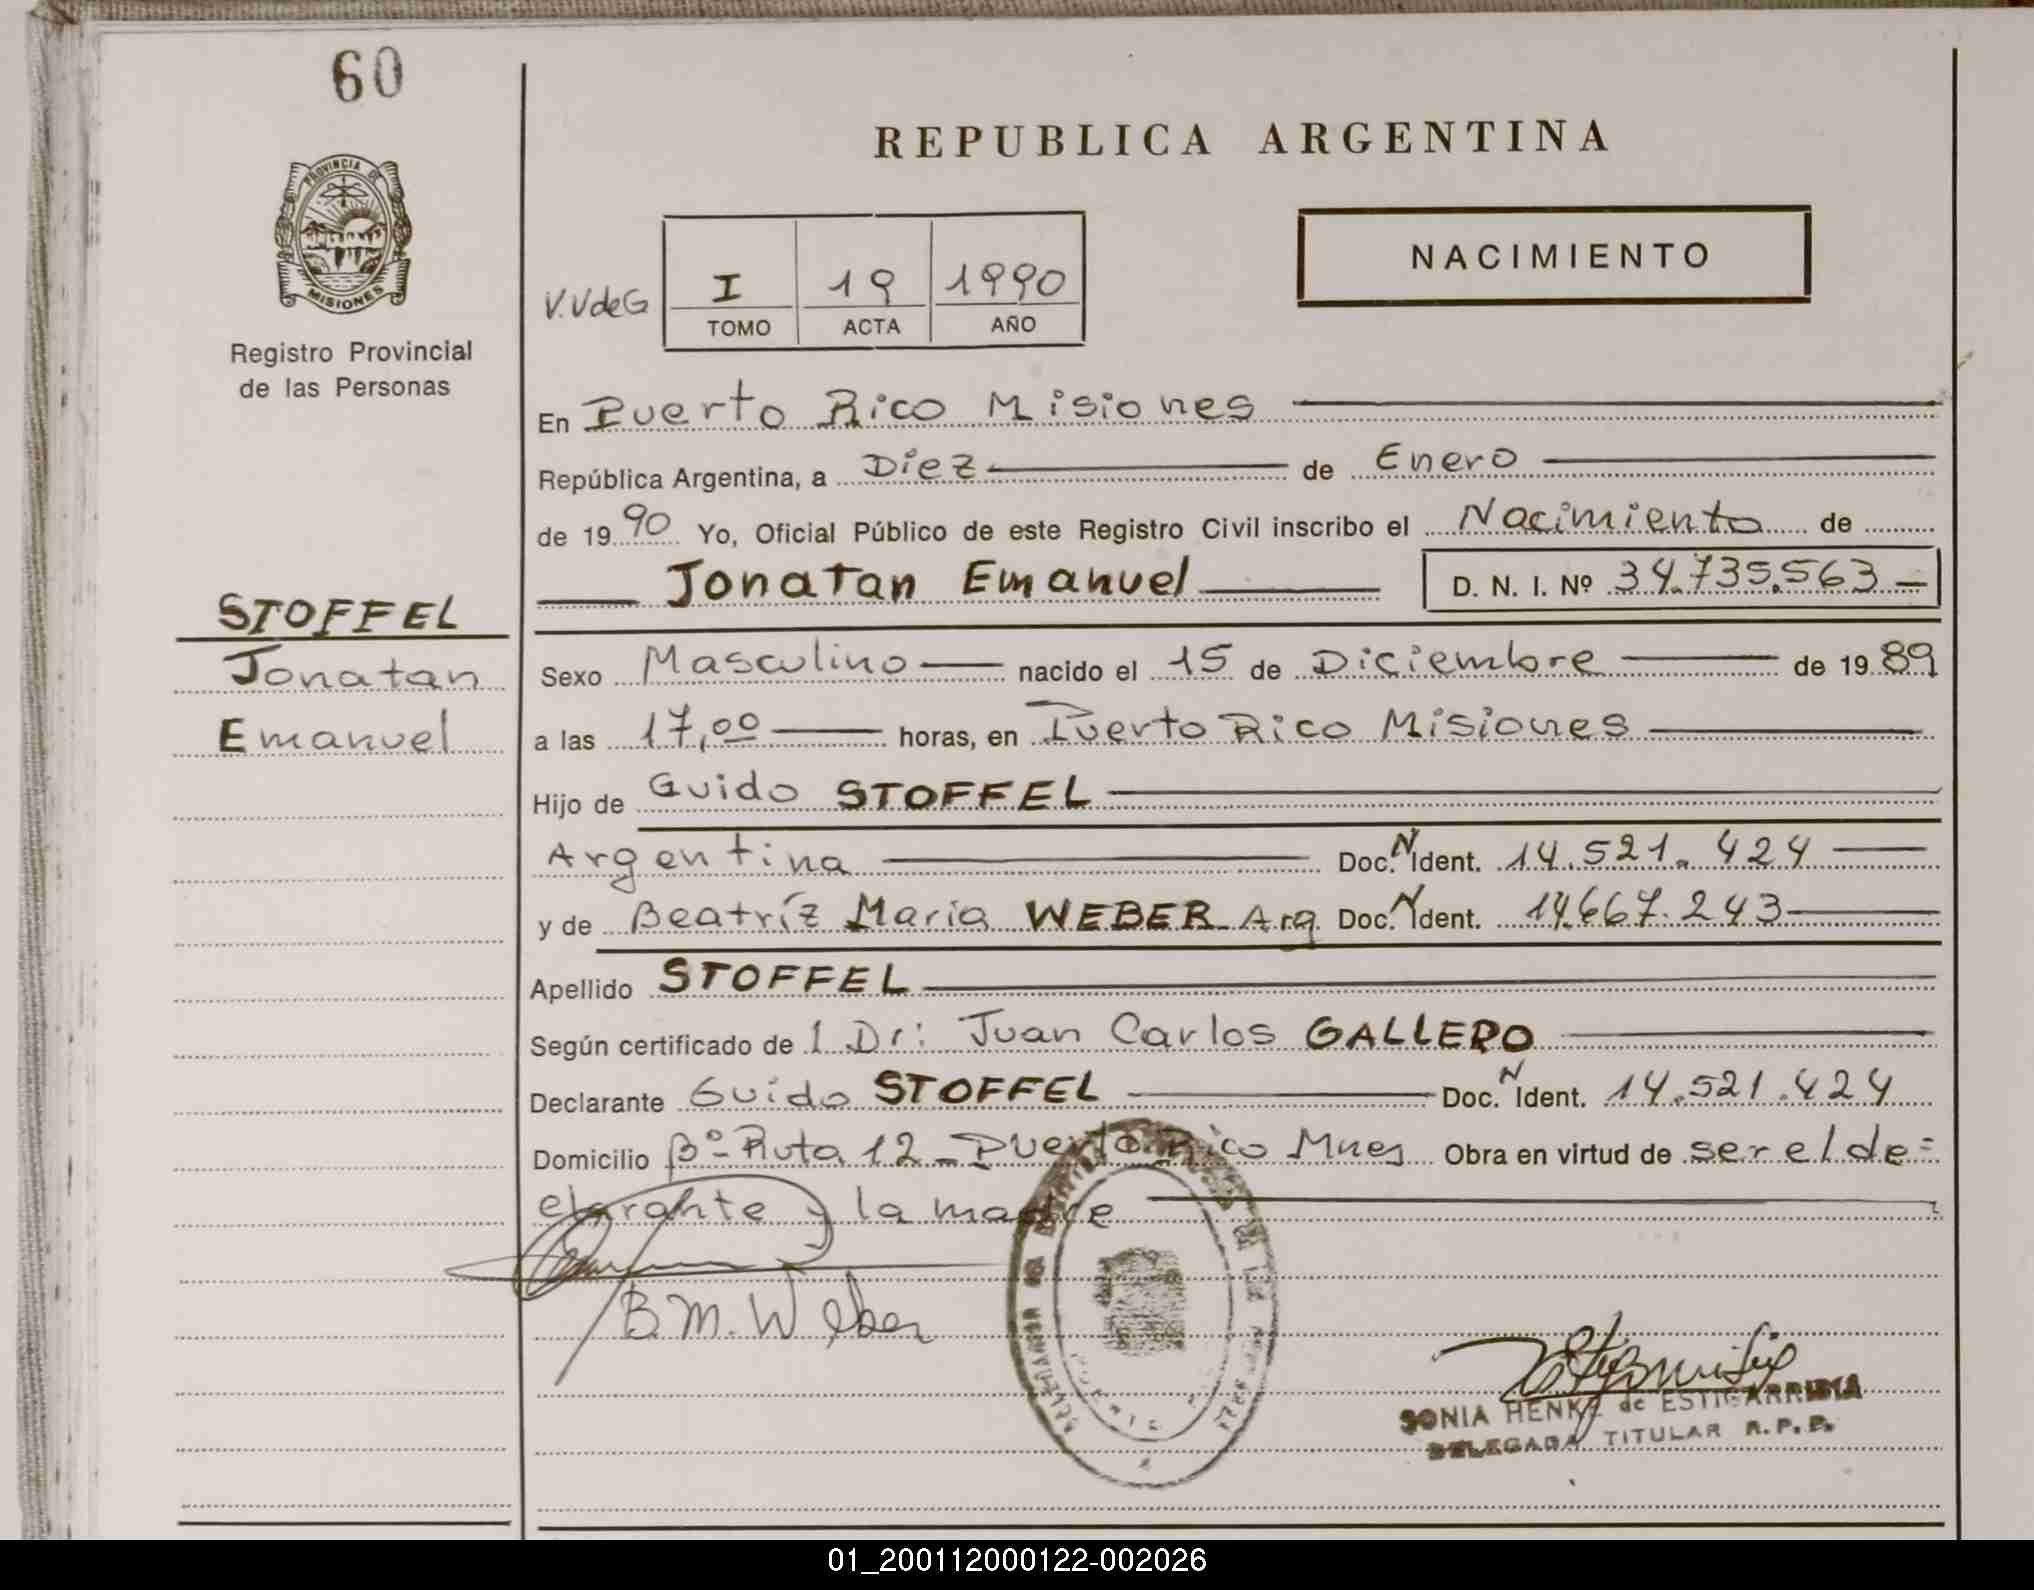 60
PROVINCIA DE
MISIONES
Registro Provincial
de las Personas
STOFFEL
Jonatan
Emanuel
REPUBLICA ARGENTINA
NACIMIENTO
V.VdeG
I 19 1990
TOMO ACTA AÑO
En Puerto Rico Misiones
República Argentina, a Diez de Enero
de 1990 Yo, Oficial Público de este Registro Civil inscribo el Nacimiento de
Jonatan Emanuel D. N. I. Nº 34.735.563
Sexo Masculino nacido el 15 de Diciembre de 1989
a las 17,00 horas, en Puerto Rico Misiones
Hijo de Guido STOFFEL
Argentina Doc. N Ident. 14.521.424
y de Beatríz Maria WEBER Arg Doc. N Ident. 14.667.243
Apellido STOFFEL
Según certificado de l Dr: Juan Carlos GALLERO
Declarante Guido STOFFEL Doc. N Ident. 14.521.424
Domicilio Bº Ruta 12 - Puerto Rico Mnes Obra en virtud de ser el de=
clarante y la madre
B.M. Weber
SONIA HENKE de ESTIGARRIBIA
DELEGADA TITULAR R.P.P.
01_200112000122-002026